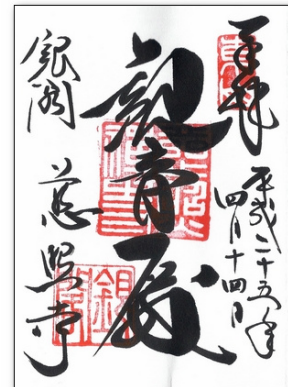 奉拝
平成二十五年
四月十四日
観音殿
銀閣
慈照寺